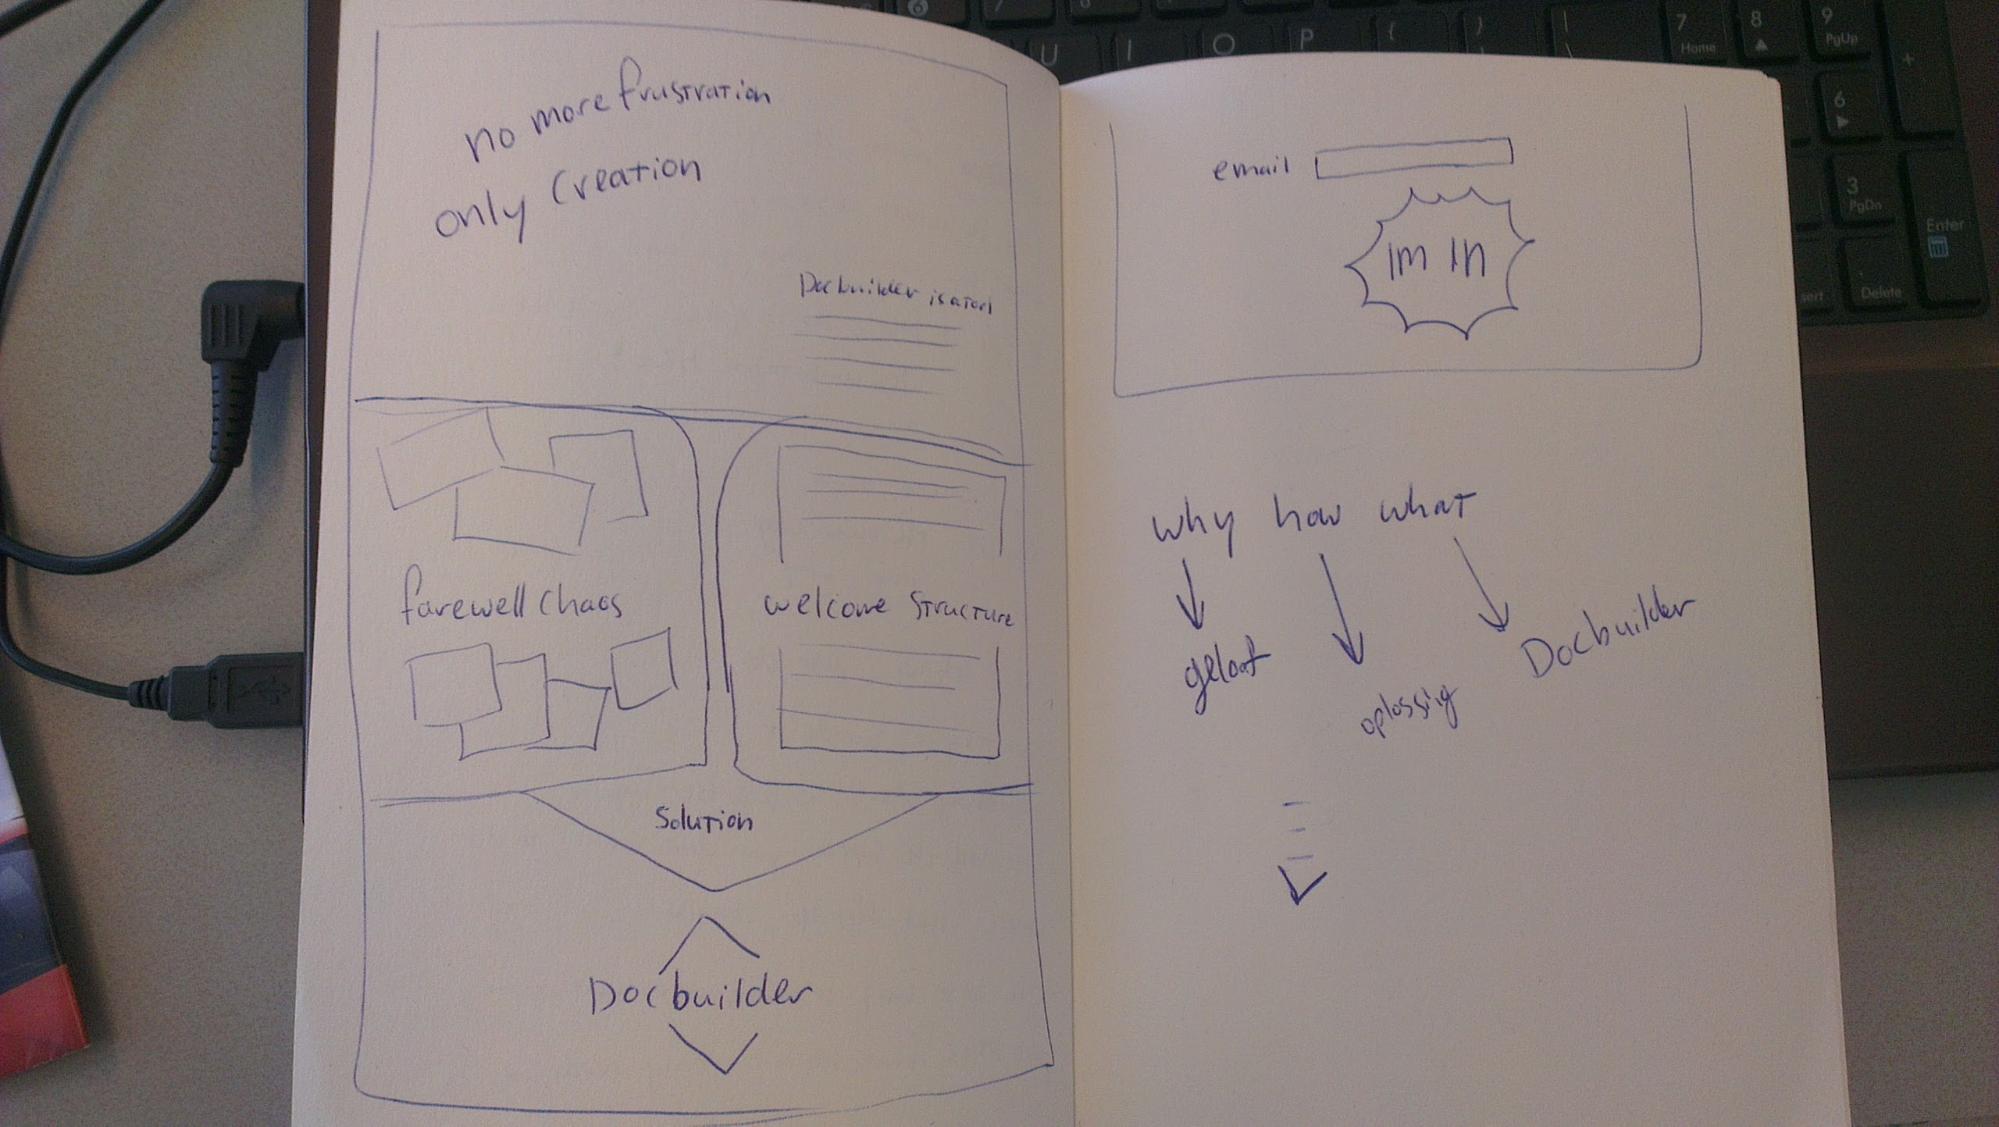 no more frustration
only creation
Docbuilder is a tool
farewell chaos
welcome structure
Solution
Docbuilder
email
im in
why how what
geloof
oplossig
Docbuilder
U I O P { } | \
7 Home
8
9 PgUp
+
6
3 PgDn
Enter
. Delete